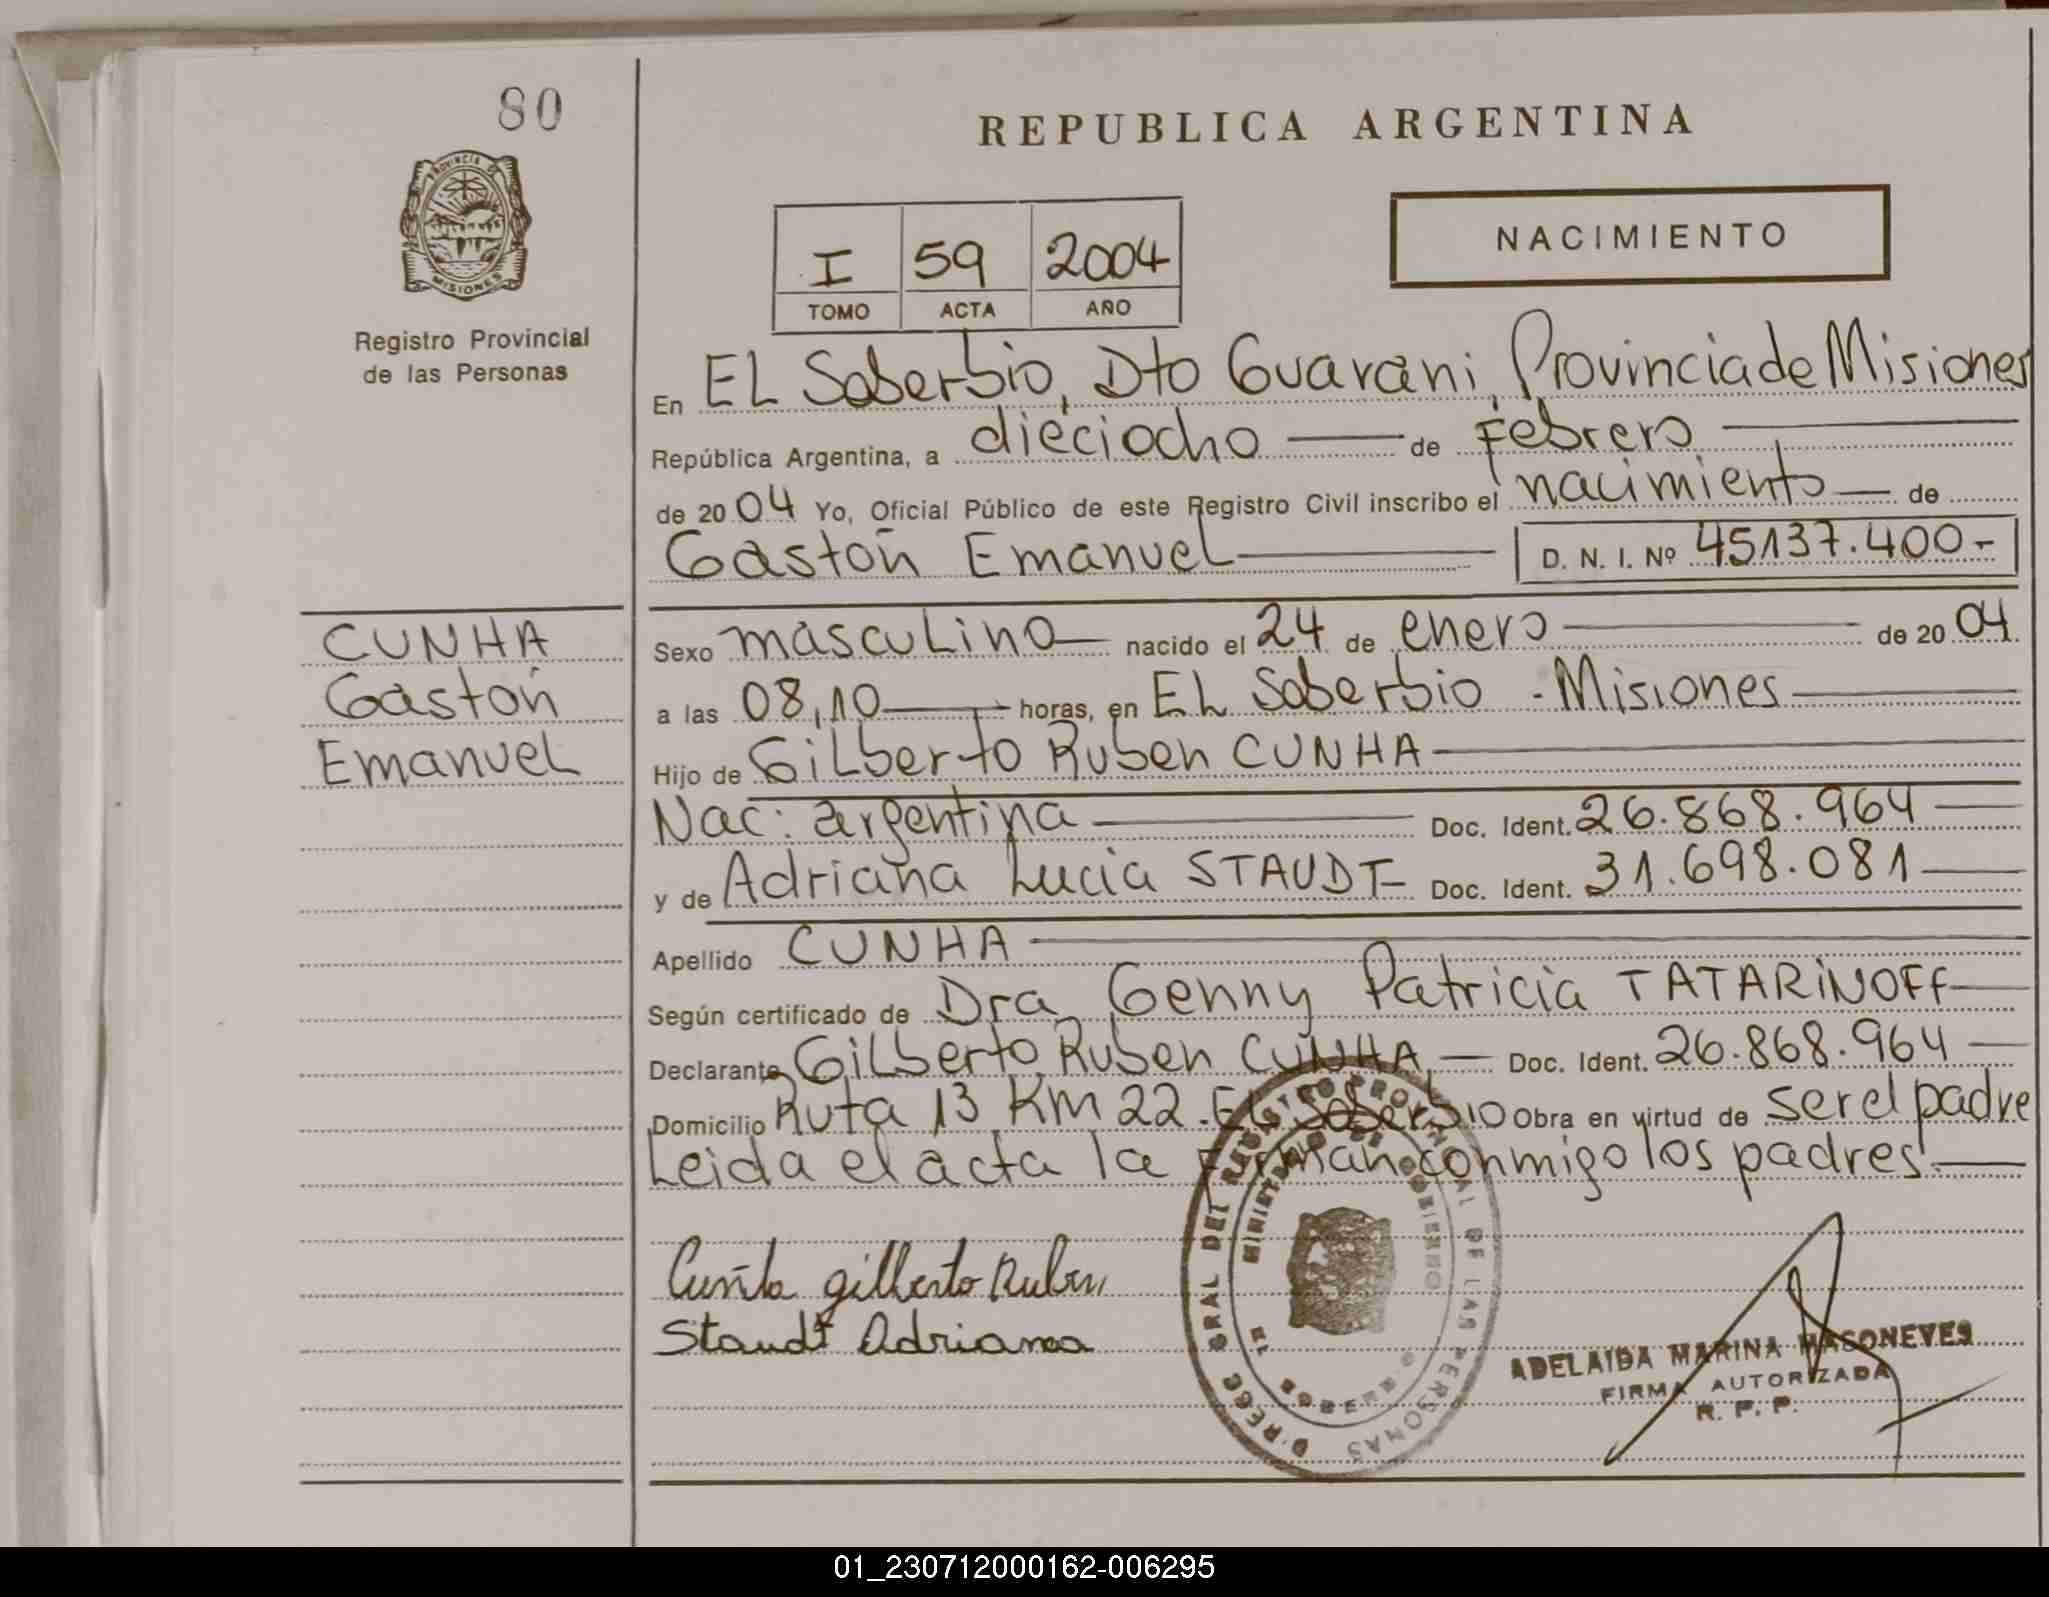 80
PROVINCIA DE
MISIONES
Registro Provincial
de las Personas
REPUBLICA ARGENTINA
I 59 2004
TOMO ACTA AÑO
NACIMIENTO
En EL Soberbio, Dto Guarani, Provincia de Misiones
República Argentina, a dieciocho de Febrero
de 2004 Yo, Oficial Público de este Registro Civil inscribo el nacimiento de
Gastón Emanuel D. N. I. Nº 45137.400.-
CUNHA
Gastón
Emanuel
Sexo masculino nacido el 24 de enero de 2004
a las 08,10 horas, en EL Soberbio - Misiones
Hijo de Gilberto Ruben CUNHA
Nac: argentina Doc. Ident. 26.868.964
y de Adriana Lucia STAUDT Doc. Ident. 31.698.081
Apellido CUNHA
Según certificado de Dra. Genny Patricia TATARINOFF
Declarante Gilberto Ruben CUNHA Doc. Ident. 26.868.964
Domicilio Ruta 13 Km 22. EL Soberbio Obra en virtud de ser el padre
Leida el acta la Firman conmigo los padres.
Cunha gilberto Ruben
Staudt Adriana
DIREC. GRAL DEL REGISTRO PROVINCIAL DE LAS PERSONAS
MINISTERIO DE GOBIERNO
ADELAIDA MARINA MASONEVES
FIRMA AUTORIZADA
R. P. P.
01_230712000162-006295